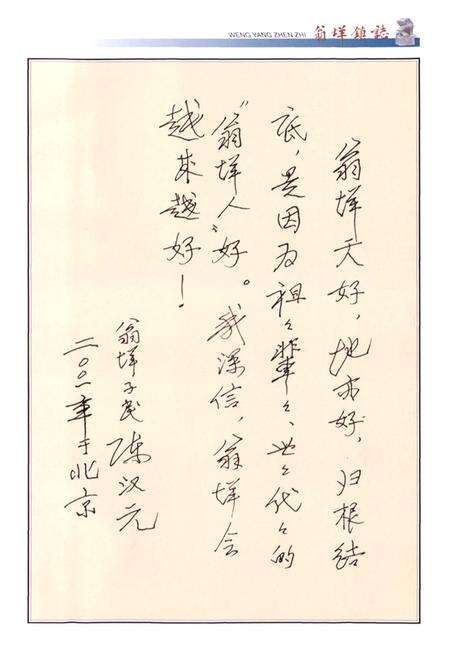 WENG YANG ZHEN ZHI 翁垟镇誌
翁垟天好，地亦好，归根结
底，是因为祖々辈々、世々代々的
“翁垟人”好。我深信，翁垟会
越来越好！
翁垟子民 陈汉元
二〇〇一年于北京